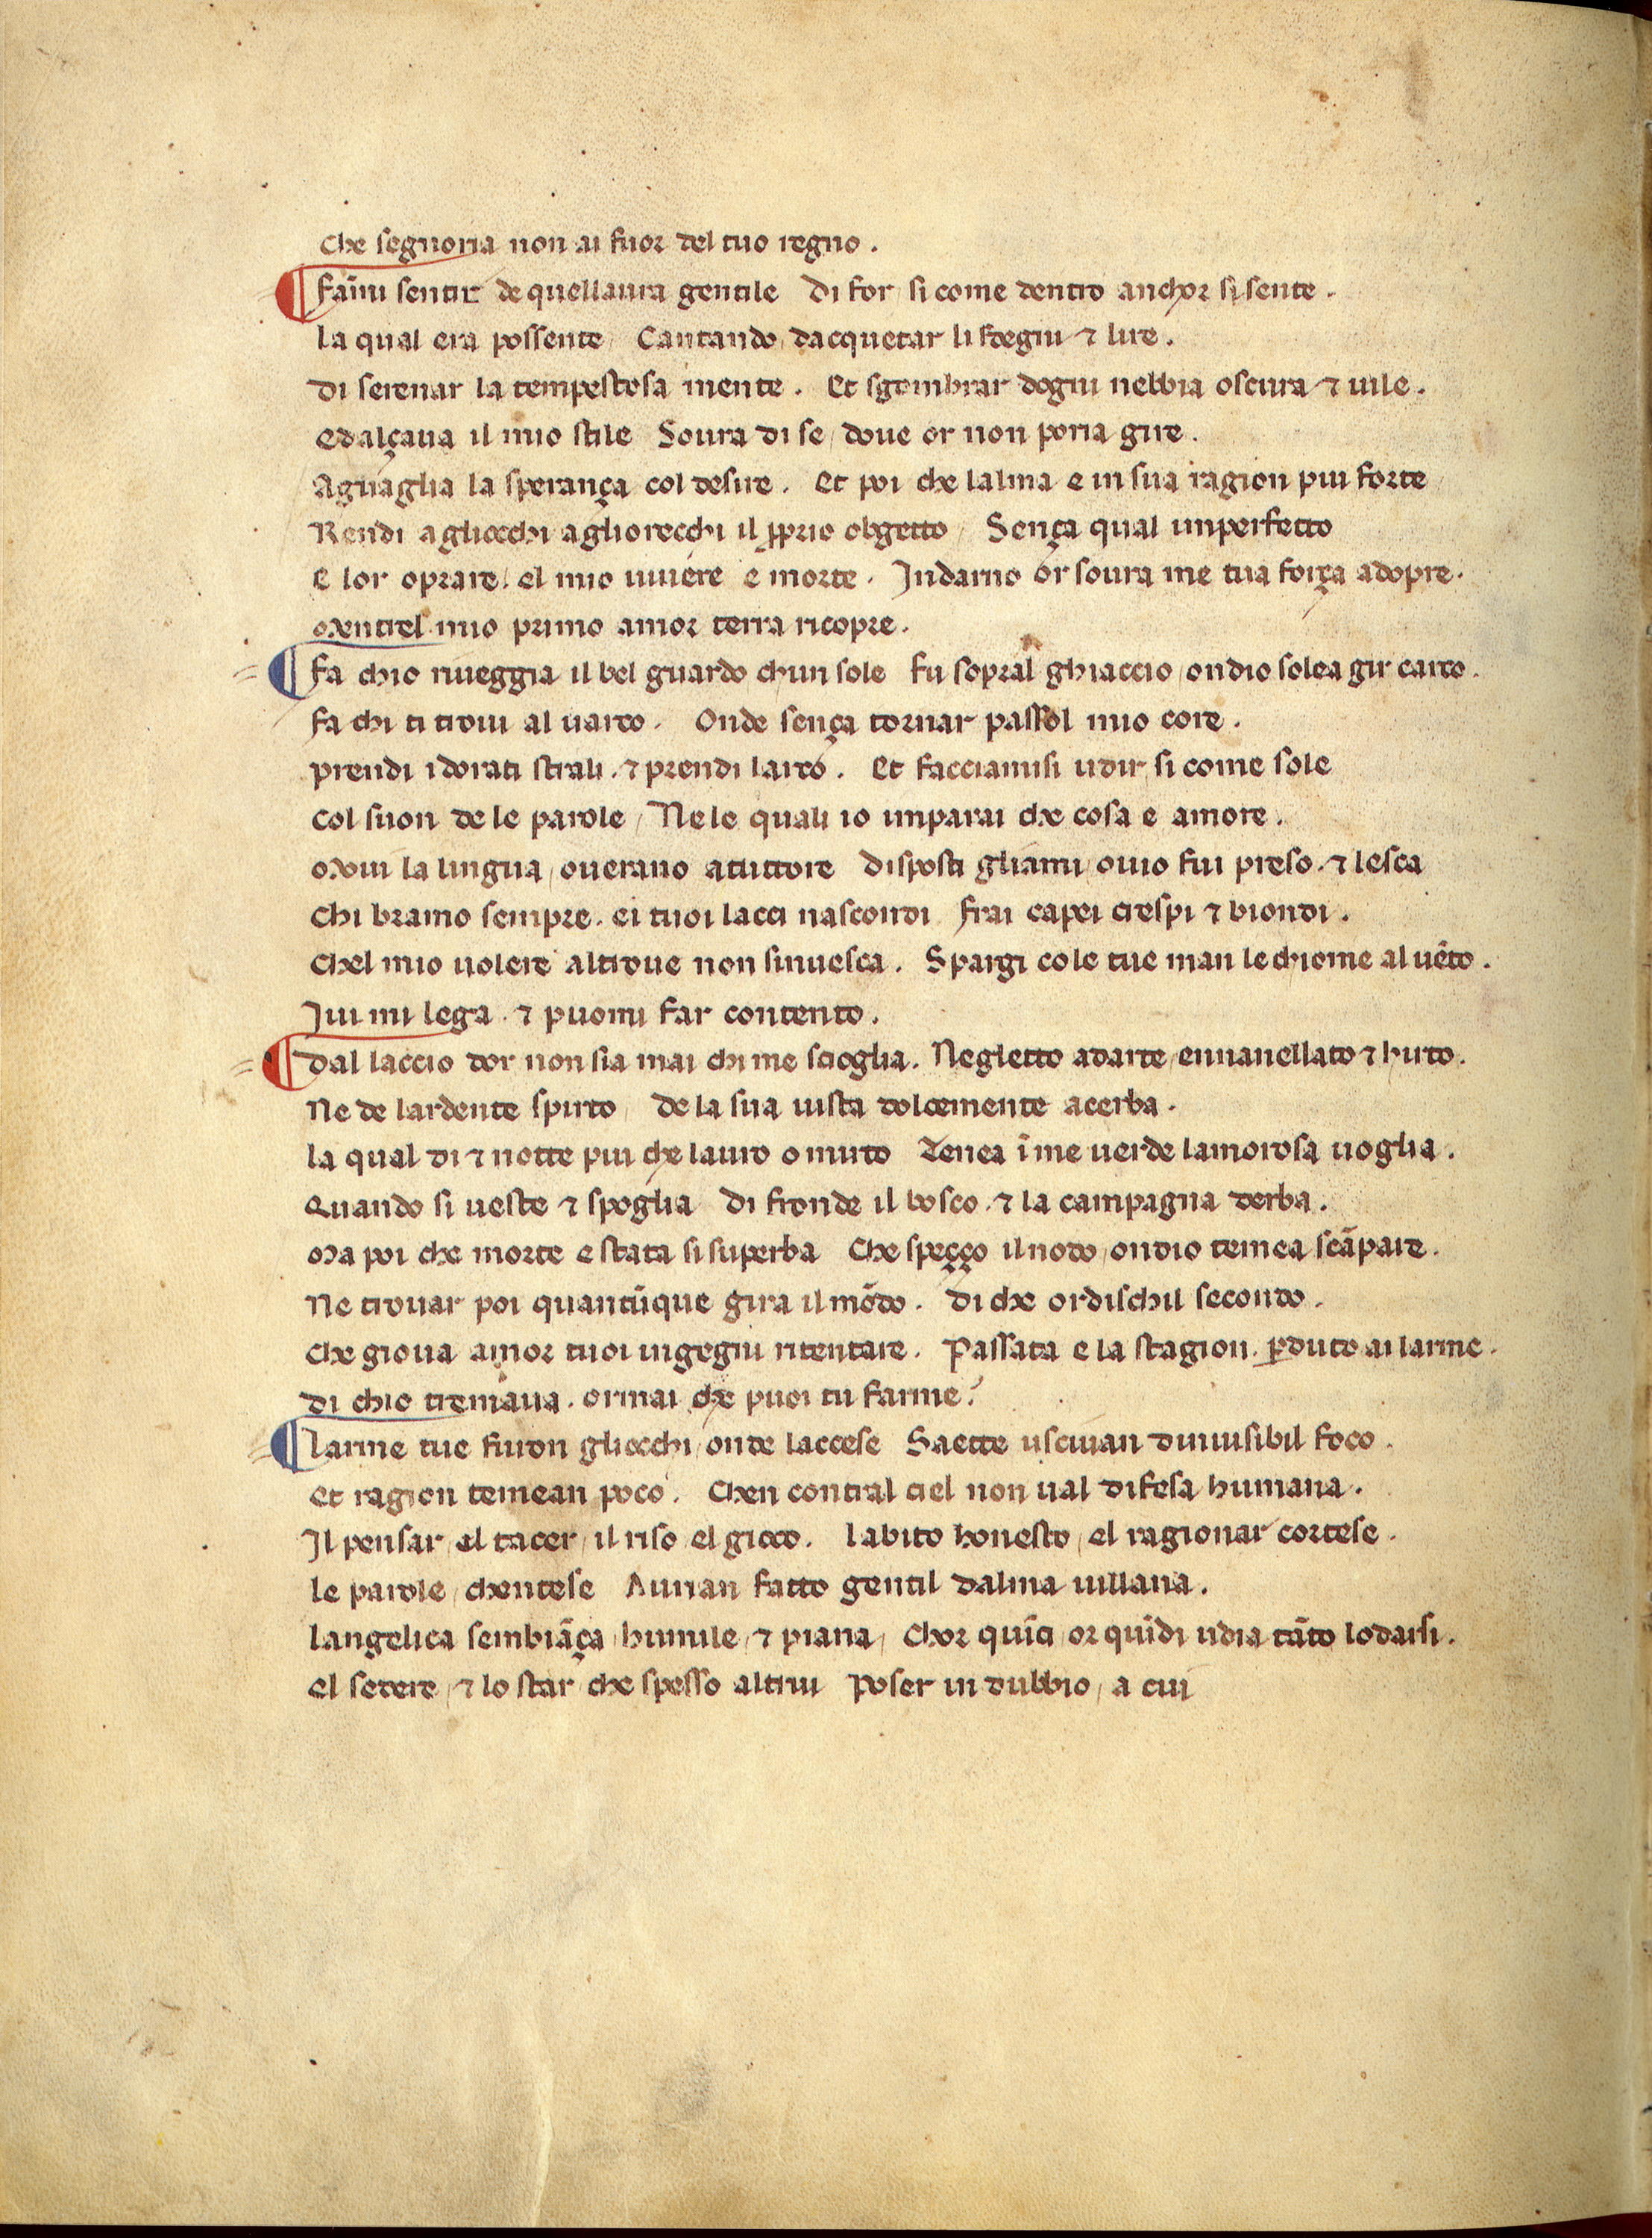 Che segnoria non ai fuor del tuo regno.
Fãmi sentir de quellaura gentile Di for / si come dentro anchor si sente.
La qual era possente / Cantando / dacquetar li sdegni ⁊ lire.
Di serenar la tempestosa mente. Et sgombrar dogni nebbia oscura ⁊ uile.
Edalçaua il mio stile Soura di se / doue or non poria gire.
Aguaglia la sperança col desire. Et poi che lalma e in sua ragion piu forte /
Rendi agliocchi agliorecchi il ꝓprio obgetto / Sença qual imperfecto
E lor oprare. el mio uiuere e morte. Indarno or soura me tua força adopre.
Mentrel mio primo amor terra ricopre.
Fa chio riueggia il bel guardo chun sole Fu sopral ghiaccio / ondio solea gir carco.
Fa chi ti troui al uarco. Onde sença tornar passol mio core.
Prendi i dorati strali. ⁊ prendi larco. Et facciamisi udir / si come sole
Col suon de le parole / Ne le quali io imparai che cosa e amore.
Moui la lingua / ouerano atuttore Disposti gliami / ouio fui preso. ⁊ lesca
Chi bramo sempre. ei tuoi lacci nascondi Frai capei crespi ⁊ biondi.
Chel mio uolere altroue non sinuesca. Spargi co le tue man le chiome al uẽto.
Iui mi lega. ⁊ puomi far contento.
Dal laccio dor non sia mai chi me scioglia. Negletto adarte / ennanellato ⁊ hirto.
Ne de lardente spirto / De la sua uista dolcemente acerba.
La qual di ⁊ notte piu che lauro o mirto Tenea ĩ me uerde lamorosa uoglia.
Quando si ueste ⁊ spoglia Di fronde il bosco. ⁊ la campagna derba.
Ma poi che morte e stata si superba Che speççò il nodo / ondio temea scãpare.
Ne trouar poi quantũque gira il mõdo. Di che ordischil secondo.
Che gioua amor tuoi ingegni ritentare. Passata e la stagion. ꝑduto ai larme.
Di chio tremaua. ormai che puoi tu farme?
Larme tue furon gliocchi / onde laccese Saette usciuan dinuisibil foco.
Et ragion temean poco. Chen contral ciel non ual difesa humana.
Il pensar / el tacer / il riso / el gioco. Labito honesto / el ragionar cortese.
Le parole / chentese Aurian fatto gentil dalma uillana.
Langelica sembiãça / humile / ⁊ piana / Chor quĩci / or quĩdi udia tãto lodarsi.
El sedere / ⁊ lo star / che spesso altrui Poser in dubbio / a cui